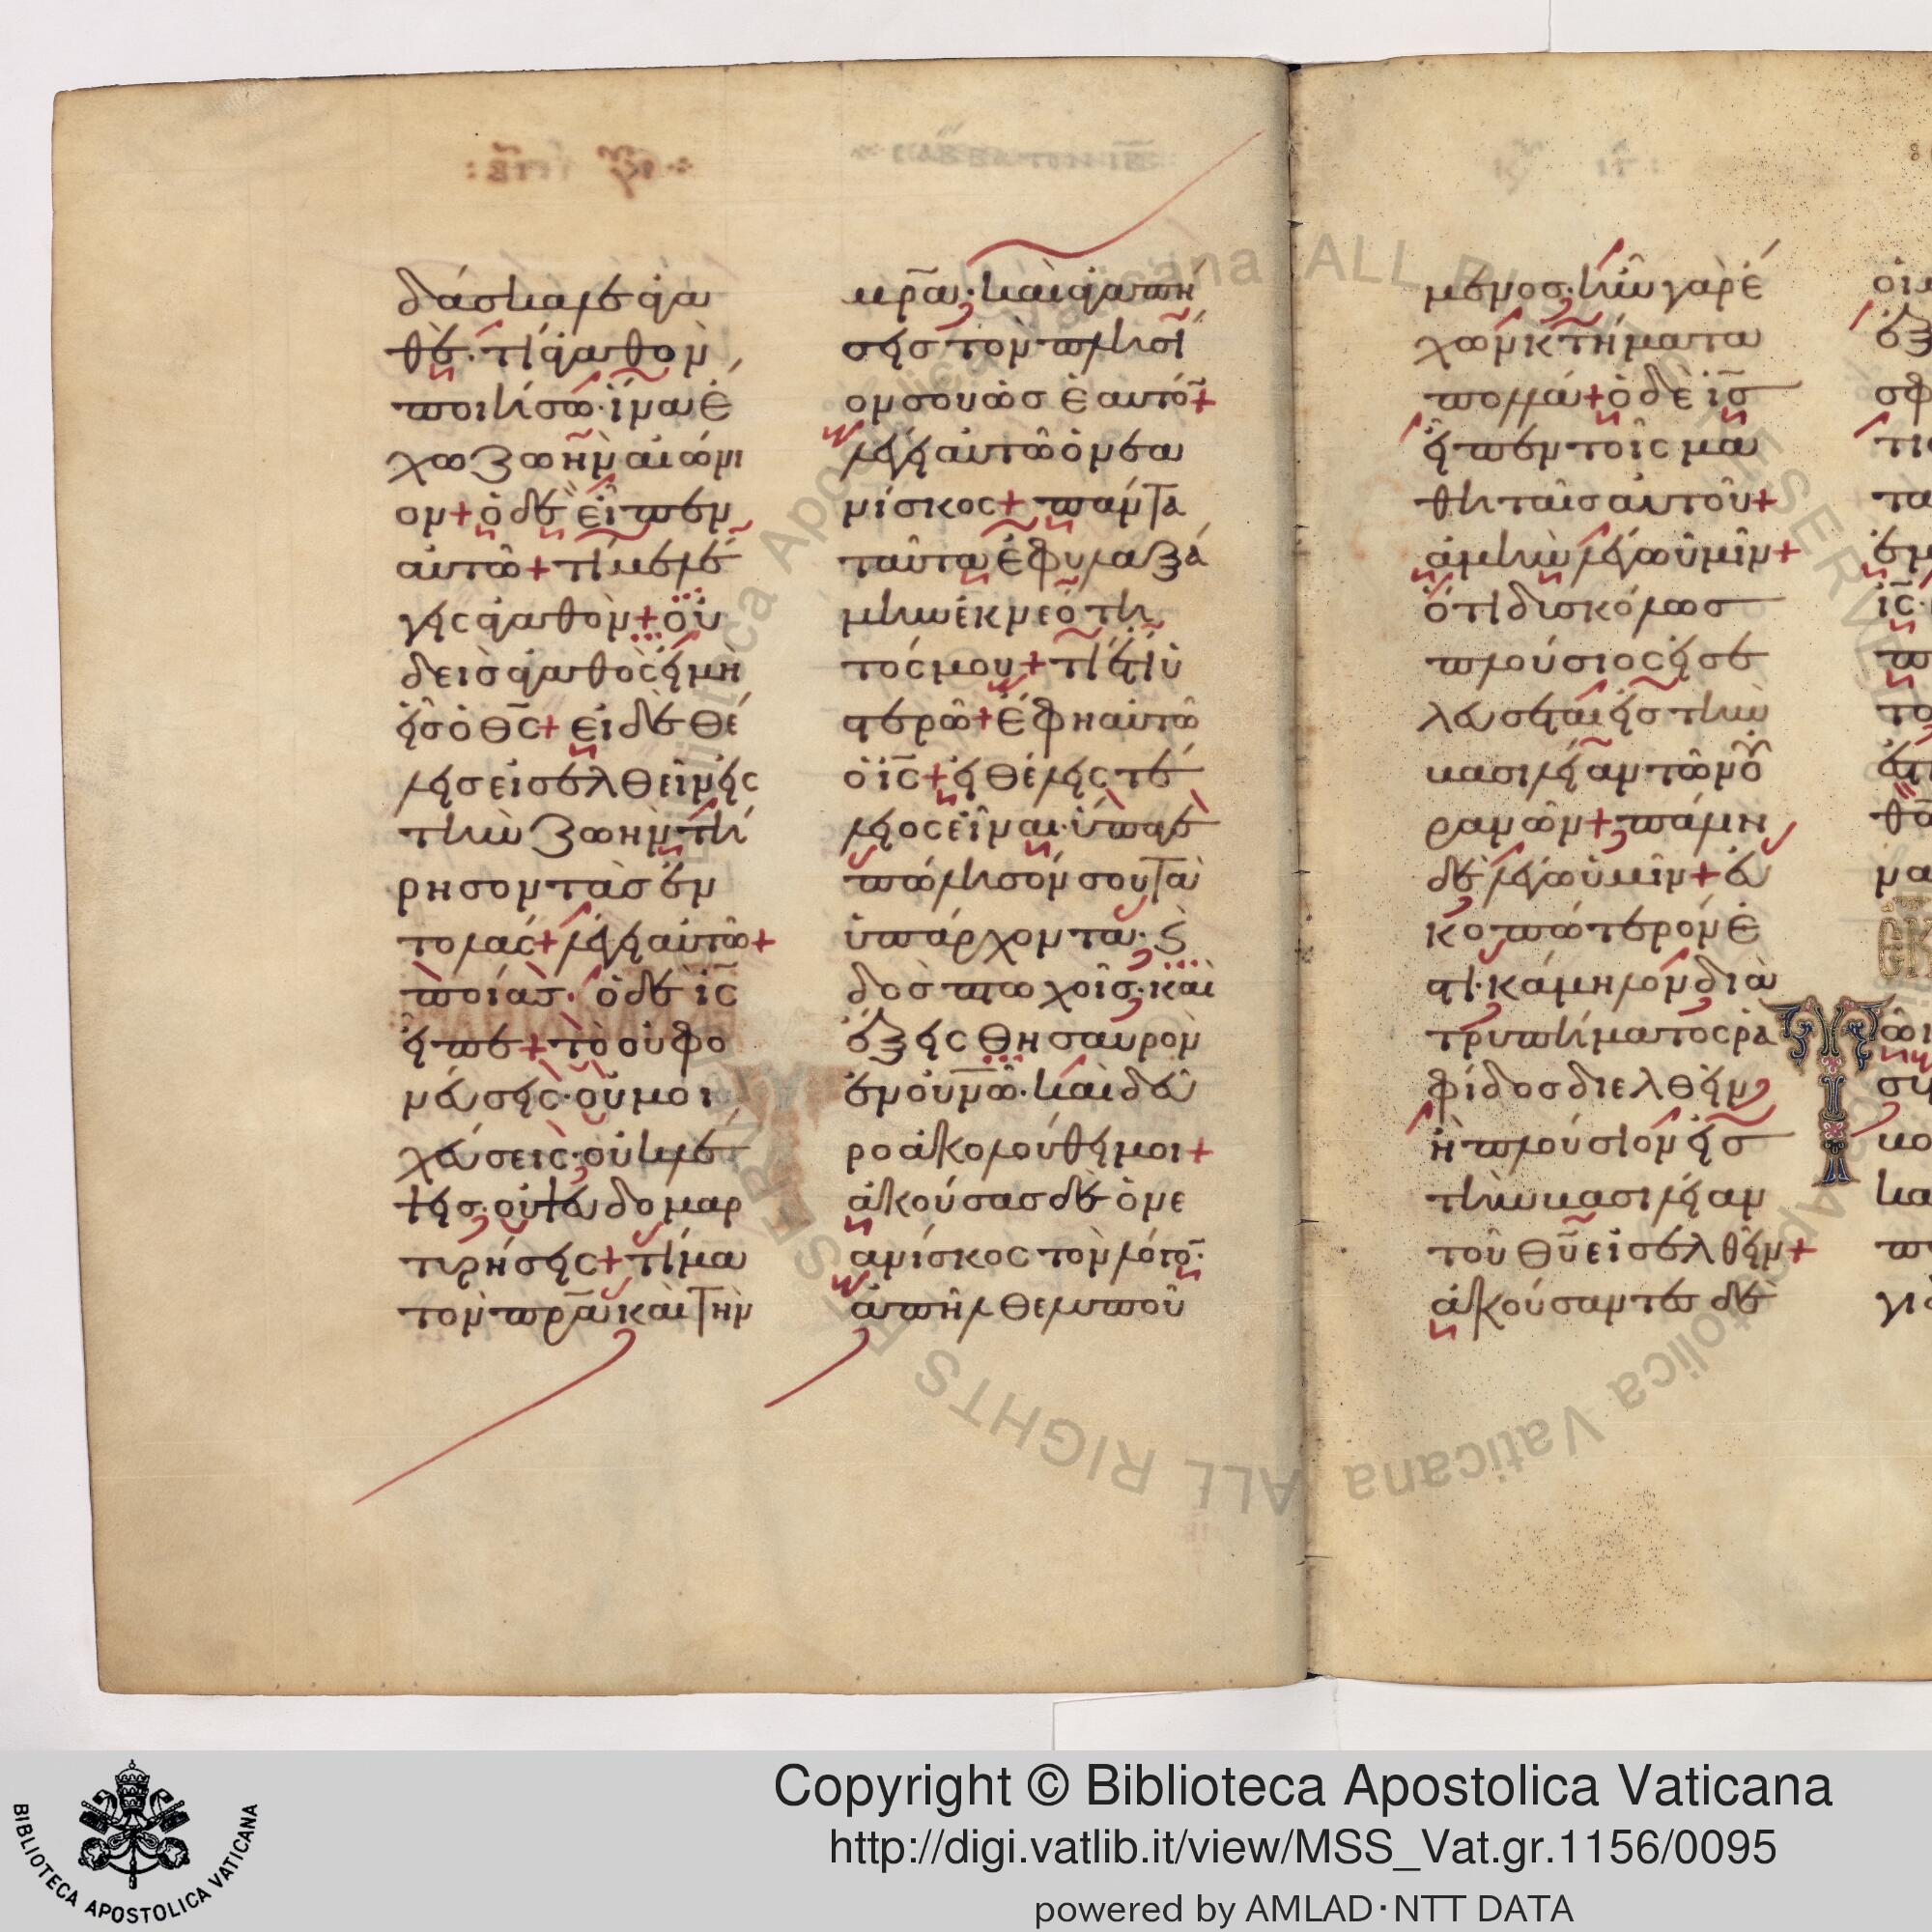 δάσκαλε ἀγα
θὲ· τί ἀγαθὸν
ποιήσω· ἵνα ἔ
χω ζωὴν αἰώνι
ον + ὁ δὲ εἶπεν
αὐτῶ + τί με λέ
γεις ἀγαθὸν + οὐ
δεὶς ἀγαθὸς εἰ μὴ
εἷς ὁ θς + εἰ δὲ θέ
λεις εἰσελθεῖν εἰς
τὴν ζωὴν τή
ρησον τὰς ἐν
τολάς + λέγει αὐτῶ +
ποίας· ὁ δὲ ις
εἶπε + τὸ οὐ φο
νεύσεις· οὐ μοι
χεύσεις· οὐ κλέ
ψεις· οὐ ψευδομαρ
τυρήσεις + τίμα
τὸν πρα καὶ τὴν
μρα· καὶ ἀγαπή
σεις τὸν πλησί
ον σου ὡς ἑαυτό +
λέγει αὐτῶ ὁ νεα
νίσκος + πάντα
ταῦτα ἐφυλαξά
μην ἐκ νεότη
τός μου + τί ἔτι ὑ
στερῶ + ἔφη αὐτῶ
ὁ ις + εἰ θέλεις τέ
λειος εἶναι· ὕπαγε
πώλησόν σου τὰ
ὑπάρχοντα· ϗ
δὸς πτωχοῖς· καὶ
ἕξεις θησαυρὸν
ἐν οὐνω· καὶ δεῦ
ρο ἀκολούθει μοι +
ἀκούσας δὲ ὁ νε
ανίσκος τὸν λόγο·
ἀπῆλθε λυπού
μενος· ἦν γὰρ ἔ
χων κτήματα
πολλά + ὁ δὲ ις
εἶπεν τοῖς μα
θηταῖς αὐτοῦ +
ἀμὴν λέγω ὑμῖν +
ὅτι δυσκόλως
πλούσιος εἰσε
λεύσεται εἰς τὴν
βασιλείαν τῶν οὐ
ρανῶν + πάλιν
δὲ λέγω ὑμῖν + εὐ
κοπώτερόν ἐ
στι· κάμηλον διὰ
τρυπήματος ρα
φίδος διελθεῖν
ἢ πλούσιον εἰς
τὴν βασιλείαν
τοῦ θυ εἰσελθεῖν +
ἀκούσαντες δὲ
Copyright © Biblioteca Apostolica Vaticana
http://digi.vatlib.it/view/MSS_Vat.gr.1156/0095
powered by AMLAD·NTT DATA
BIBLIOTECA APOSTOLICA VATICANA